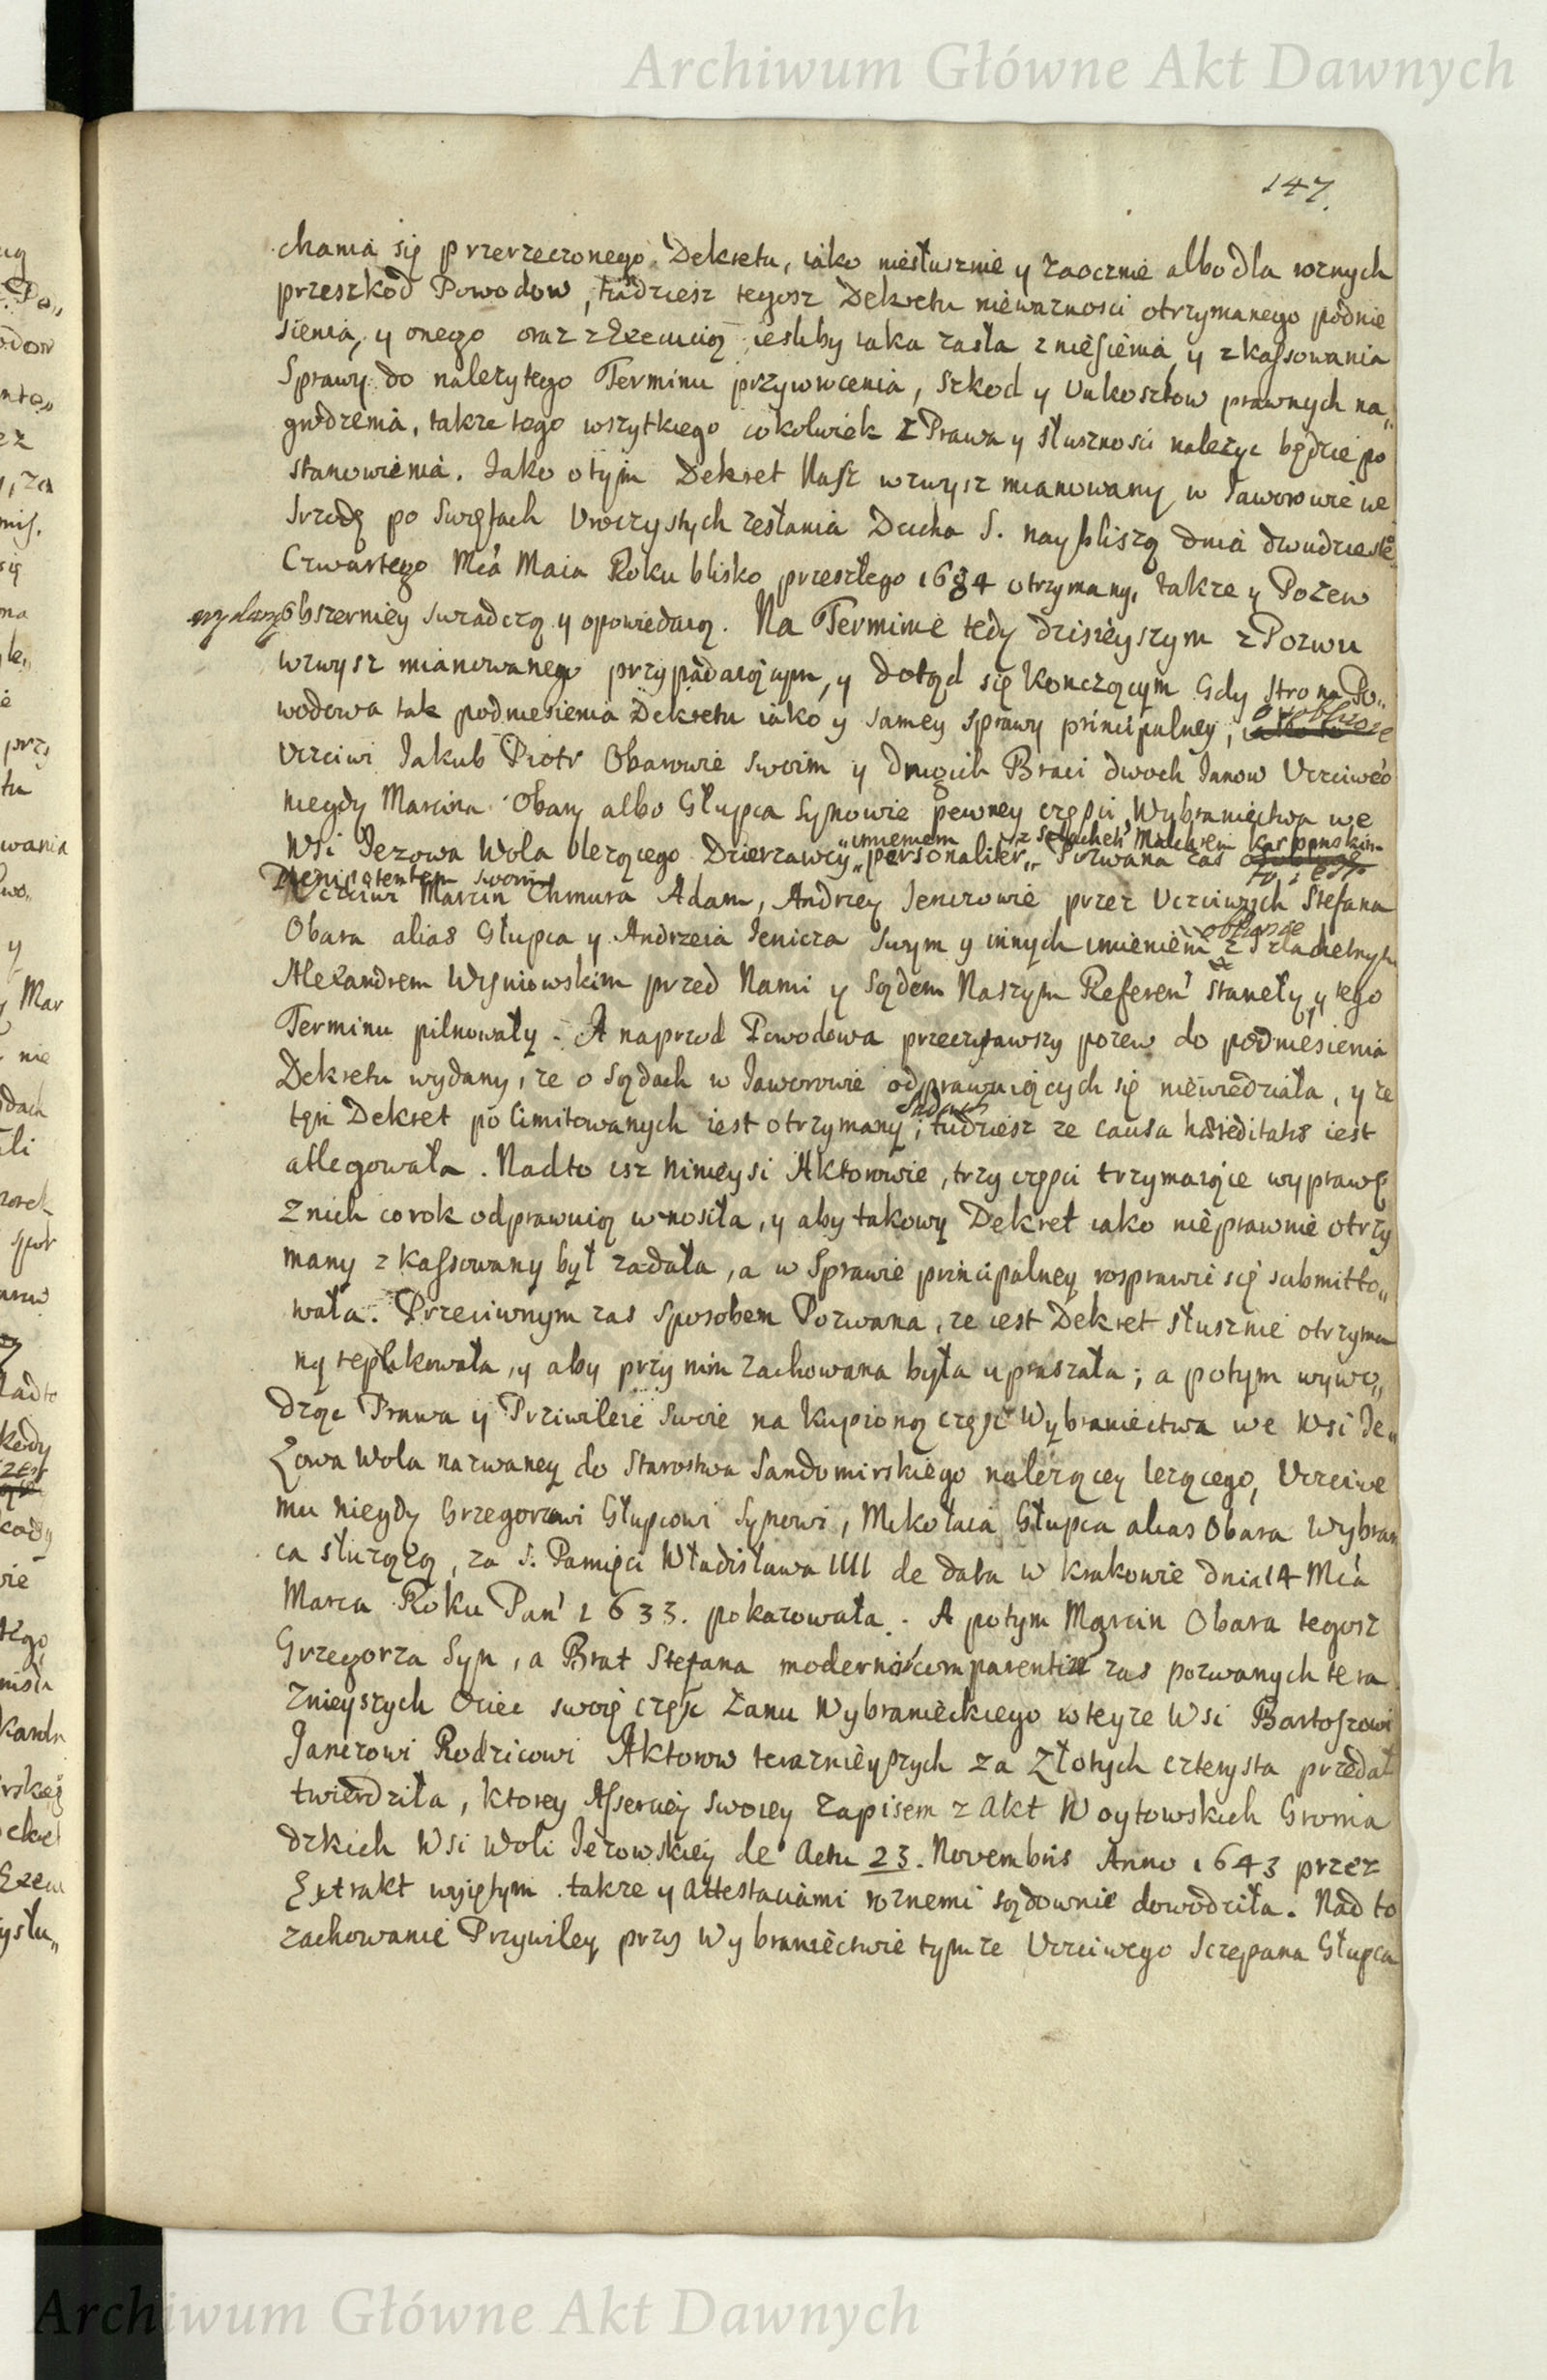 Archiwum Główne Akt Dawnych
147.
chania się przerzeczonego Dekretu, iako niesłusznie y zaocznie albo dla roznych
przeszkod Powodow, tudziesz tegosz Dekretu niewaznosci otrzymanego podnie
sienia, y onego oraz z Exekucią iesliby iaka zasła zniesienia, y zkassowania
Sprawy do nalezytego Terminu przywrocenia, szkod y unkosztow prawnych na„
grodzenia, takze tego wszytkiego cokolwiek z Prawa y słusznosci nalezyc będzie po
stanowienia. Iako o tym Dekret Nasz wzwysz mianowany w Iaworowie we
Srzodę po Swiętach Uroczystych zesłania Ducha S. naybliszą dnia dwudzieste°
Czwartego Mca Maia Roku blisko przeszłego 1684 otrzymany, takze y Pozew
wydany obszerniey swiadczą y opowiedaią. Na Terminie tedy dzisieyszym z Pozwu
wzwysz mianowanego przypadaiącym, y dotąd się konczącym Gdy strona Po„
wodowa tak podniesienia Dekretu iako y samey sprawy principalney, oblicznie
Uczciwi Iakub Piotr Obarowie swoim y drugich Braci dwoch Ianow Uczciweo
niegdy Marcina Obary albo Głupca Synowie pewney częsci Wybraniectwa we
imieniem z Szlachet Macieiem Karpinskim
Wsi Iezowa Wola lezącego Dzierzawcy „personaliter„ Pozwana zas to iest
Plenipotentem swoim
Uczciwi Marcin Chmura Adam, Andrzey Ieniczowie przez Uczciwych Stefana
oblicznie
Obara alias Głupca y Andrzeia Ienicza swym y innych imieniem z Szlachetnym
Alexandrem Wisniowskim przed Nami y Sądem Naszym Referen' staneły, y tego
Terminu pilnowały. A naprzod Powodowa przeczytawszy pozew do podniesienia
Dekretu wydany, ze o Sądach w Iaworowie odprawuiących się niewiedziała, y ze
Sądach
ten Dekret po limitowanych iest otrzymany, tudziesz ze causa hæreditatis iest
allegowała. Nadto isz ninieysi Aktorowie, trzy częsci trzymaiące wyprawę
z nich co rok odprawuią wnosiła, y aby takowy Dekret iako nieprawnie otrzy
many zkassowany był ządała, a w Sprawie principalney rosprawić się submitto„
wała. Przeciwnym zas sposobem Pozwana, ze iest Dekret słusznie otrzyma
ny replikowała, y aby przy nim zachowana była upraszała; a potym wywo„
dząc Prawa y Priwileie swoie na kupioną częsc Wybraniectwa we Wsi Ie„
zowa Wola nazwaney do Starostwa Sandomirskiego nalezącey lezącego, Uczciwe
mu niegdy Grzegorzowi Głupcowi Synowi, Mikołaia Głupca alias Obara Wybran
ca słuzącą, za S. Pamięci Władisława IIII de data w Krakowie dnia 14 Mca
Marca Roku Pan' 1633. pokazowała. A potym Marcin Obara tegosz
Grzegorza Syn, a Brat Stefana moderni comparentis zas pozwanych tera
znieyszych Ociec swoię częsc Łanu Wybranieckiego w teyze Wsi Bartoszowi
Janczowi Rodzicowi Aktorow teraznieyszych za Złotych czterysta przedał
twierdziła, ktorey Asserciey swoiey zapisem z Akt Woytowskich Groma
dzkich Wsi Woli Iezowskiey de Actu 23. Novembris Anno 1643 przez
Extrakt wyiętym takze y attestaciami roznemi sądownie dowodziła. Nad to
zachowanie Przywiley przy Wybraniectwie tymze Uczciwego Sczepana Głupca
Archiwum Główne Akt Dawnych